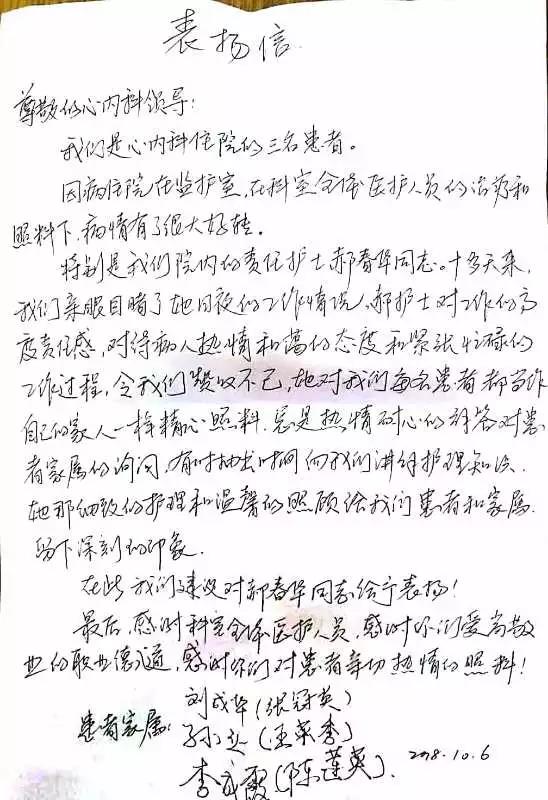 表扬信
尊敬的心内科领导:
我们是心内科住院的三名患者。
因病住院在监护室,在科室全体医护人员的治疗和
照料下,病情有了很大好转。
特别是我们院内的责任护士郝春华同志。十多天来,
我们亲眼目睹了她日夜的工作情况,郝护士对工作的高
度责任感,对待病人热情和蔼的态度和紧张忙碌的
工作过程,令我们赞叹不已,她对我们每名患者都当作
自己的家人一样精心照料,总是热情耐心的解答对患
者家属的询问,有时抽出时间向我们讲解护理知识.
她那细致的护理和温馨的照顾给我们患者和家属
留下深刻的印象.
在此,我们建议对郝春华同志给予表扬!
最后,感谢科室全体医护人员,感谢你们爱岗敬
业的职业德,感谢你们对患者亲切热情的照料!
刘成华(张冠英)
患者家属: 孙(王菊季)
李成霞(陈莲英).
2018.10.6